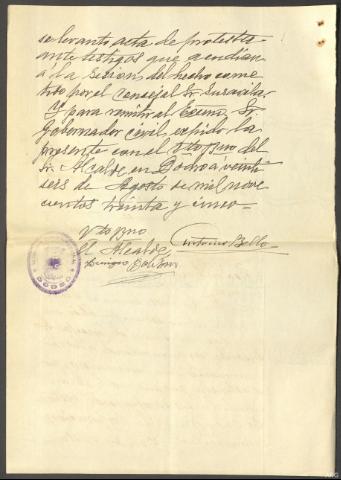 se levantó acta de protesta
ante testigos que acudian
á la sesion del hecho come
tido por el concejal Sr.
Y para remitir al Excmo. Sr.
Gobernador civil, expido la
presente con el Vto Bno del
Sr. Alcalde en Dodro á veinti
seis de Agosto de mil nove
cientos treinta y cinco
Vto Bno
El Alcalde
Antonio Bello
DODRO